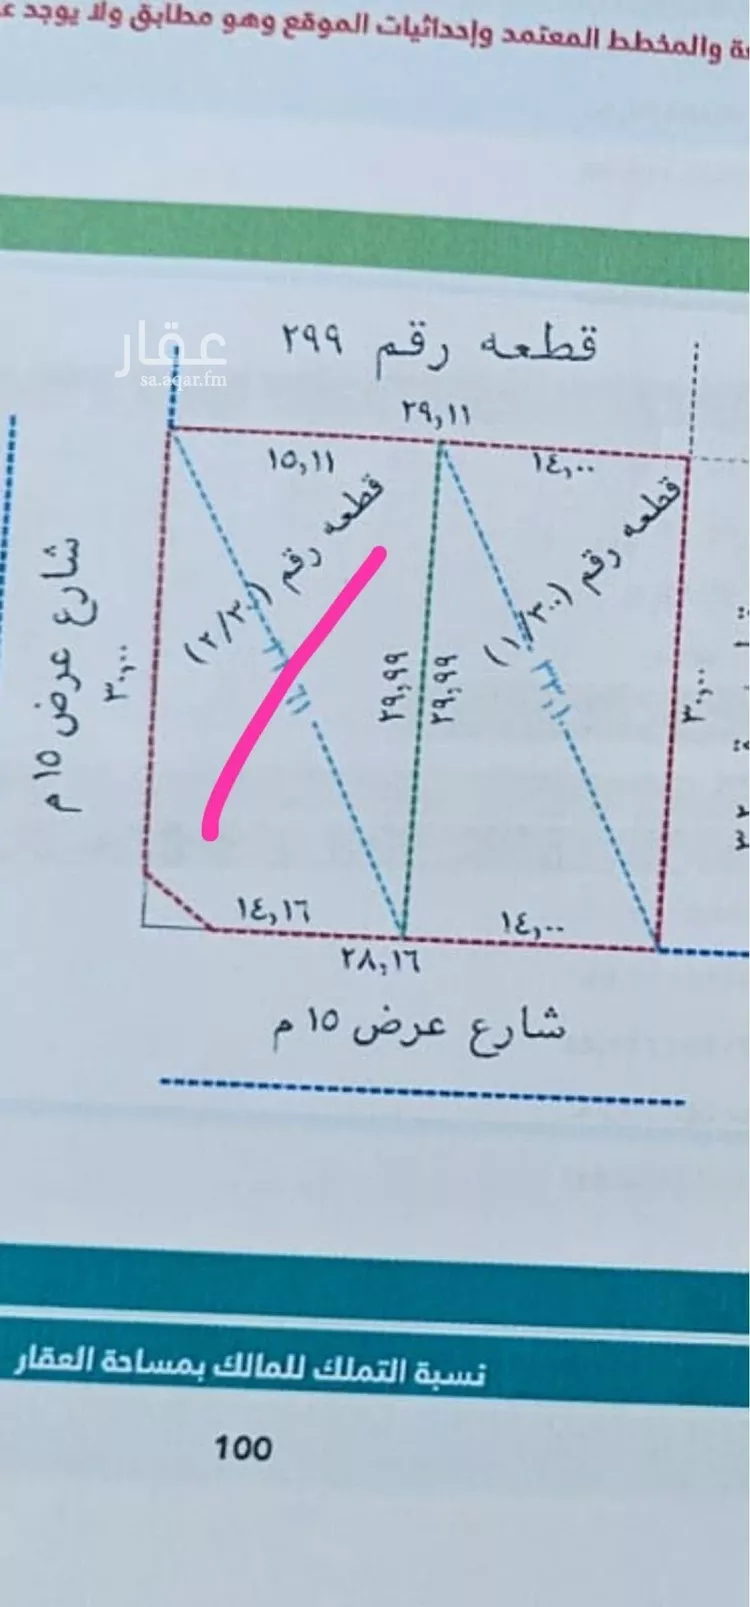 والمخطط المعتمد وإحداثيات الموقع وهو مطابق ولا يوجد
عقار
sa.aqar.fm
قطعه رقم ٢٩٩
٢٩,١١
١٥,١١
١٤,٠٠
قطعه رقم (٢/٣٠٠)
قطعه رقم (١/٣٠٠)
شارع عرض ١٥ م
٣٠,٠٠
٢٩,٩٩
٢٩,٩٩
٣٣,١٠
٣٠,٠٠
١٤,١٦
١٤,٠٠
٢٨,١٦
شارع عرض ١٥ م
نسبة التملك للمالك بمساحة العقار
100